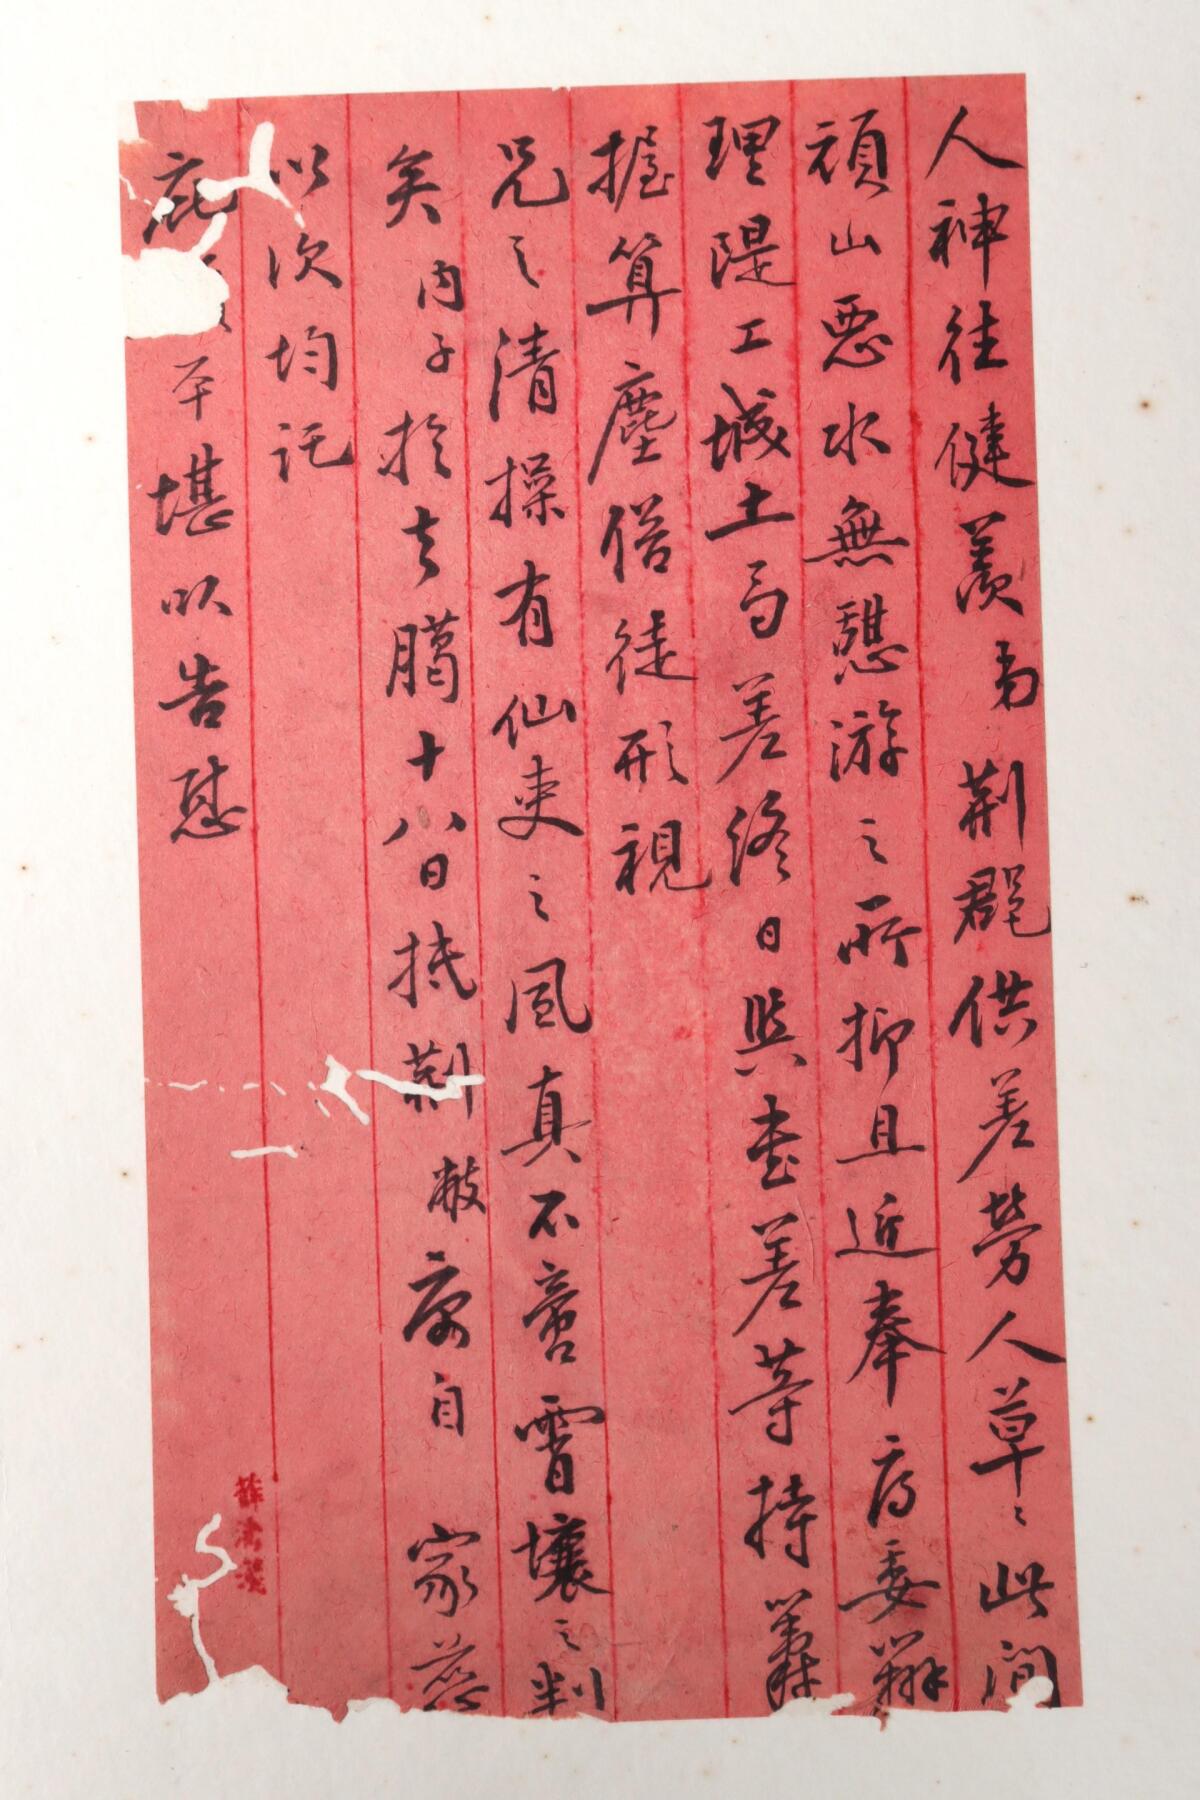 人神往健羡弟荆郡供差劳人草〻此间
顽山恶水無憩游之所抑且近奉府委辦
理隄工城土局差终日與書差等持籌
握算塵俗徒形視
兄之清操有仙吏之風真不啻霄壤之判
矣内子於去臘十八日抵荆敝寓自家慈
以次均託
庇平堪以告慰